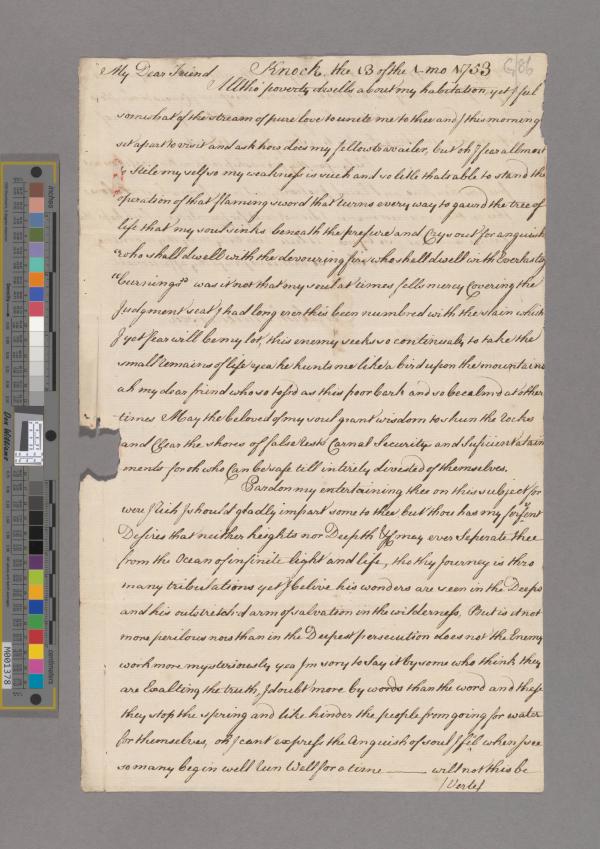 My Dear Friend Knock, the 13 of the 1 mo 1753
G/86
Altho' poverty dwells about my habitation yet I feel
somwhat of the stream of pure love to unite me to thee and I this morning
set apart to visit and ask how does my fellow travailer, but oh I fear allmost
to stile my self so my weakness is such and so little that's able to stand the
operation of that flaming sword that turns every way to gaurd the tree of
life that my soul sinks beneath the presure and Crys out for anguish
"who shall dwell with the devouring fire who shall dwell with Everlasting
"burnings" was it not that my soul at times feels mercy Covering the
Judgment seat I had long ere this been numbred with the slain which
I yet fear will be my lot, this enemy seeks so continualy to take the
small remains of life yea he hunts me like a bird upon the mountains
ah my dear friend who so tos'd as this poor bark and so becalmd at other
times May the beloved of my soul grant wisdom to shun the rocks
and Clear the shores of false rests Carnal Security and Suficient attain
ments for oh who Can be safe till intirely divested of themselves.
Pardon my entertaining thee on this subject for
were I rich I should gladly impart some to thee but thou has my fervent
Desires that neither heights nor Deepth may ever seperate thee
from the Ocean of infinite light and life, tho thy Journey is thro
many tribulations yet I belive his wonders are seen in the Deeps
and his outstretch'd arm of salvation in the wilderness, But is it not
more perilous now than in the Deepest persecution does not the Enemy
work more mysteriously yea I'm sory to say it by some who think they
are Exalting the truth, I doubt more by words than the word and these
they stop the spring and like hinder the people from going for water
for themselves, oh I cant express the Anguish of soul I feel when I see
so many begin well run Well for a time —— will not this be
/Verte/
Don Williams
inches
centimeters
M001378